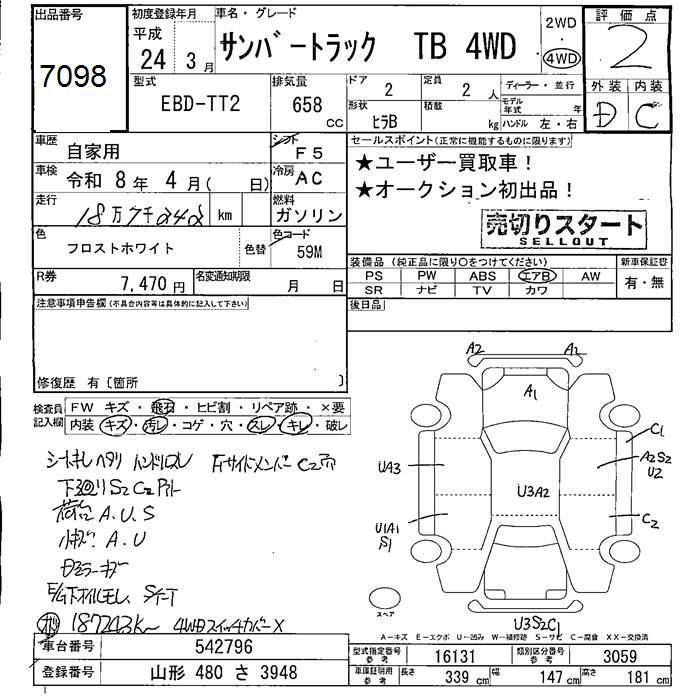 出品番号
7098
初度登録年月
平成
24年 3月
車名・グレード
サンバートラック TB 4WD
2WD
・
4WD
評価点
2
外装 内装
D C
型式
EBD-TT2
排気量
658
CC
ドア
2
定員
2 人
形状
ヒラB
積載
kg
ディーラー・並行
モデル年式 年
ハンドル 左・右
車歴
自家用
シフト
F5
車検
令和 8年 4月( 日)
冷房
AC
走行
18万7千242
km
燃料
ガソリン
色
フロストホワイト
色替
色コード
59M
R券
7,470円
名変通知期限
月 日
セールスポイント(正常に機能するものに限ります)
★ユーザー買取車!
★オークション初出品!
売切りスタート
SELLOUT
装備品(純正品に限り○をつけてください)
PS PW ABS エアB AW
SR ナビ TV カワ
新車保証書
有・無
後日品
注意事項申告欄(不具合内容等は具体的に記入して下さい)
修復歴 有〔箇所 〕
検査員記入欄
FW キズ・飛石・ヒビ割・リペア跡・×要
内装 キズ・汚レ・コゲ・穴・スレ・キレ・破レ
シートキレヘタリ ハンドルスレ
下回りS2C2
荷台A.U.S
A.U
187243K
4WDスイッチカバーX
A2 A2
A1
C1
UA3
A2S2
U2
U3A2
U1A1
S1
C2
スペア
U3S2C1
A-キズ E-エクボ U-凹み W-補修跡 S-サビ C-腐食 XX-交換済
車台番号
542796
登録番号
山形 480 さ 3948
型式指定番号
参考
16131
類別区分番号
参考
3059
車庫証明用
参考
長さ
339 cm
幅
147 cm
高さ
181 cm